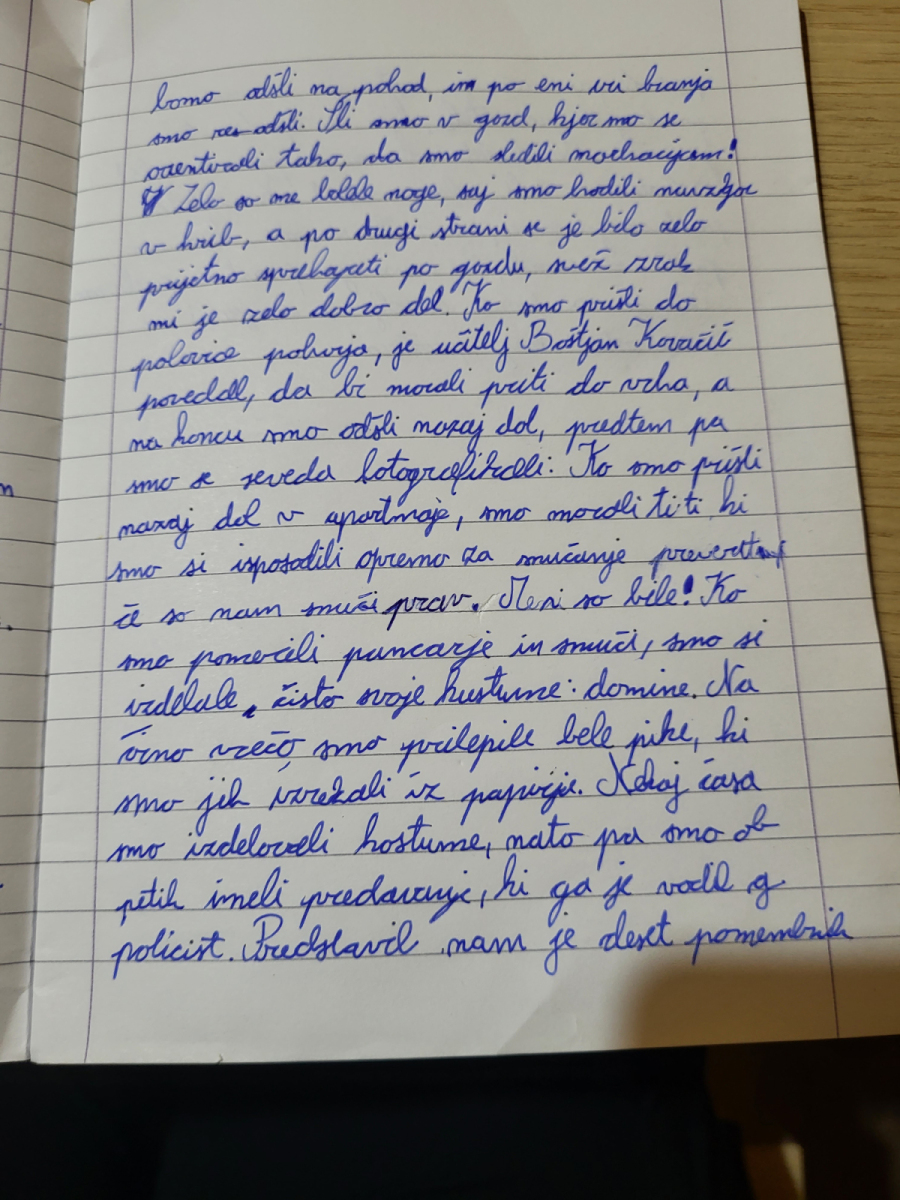 bomo odšli na pohod, in po eni uri branja
smo res odšli. Šli smo v gozd, kjer smo se
orientirali tako, da smo sledili markacijam!
Zelo so me bolele noge, saj smo hodili navzgor
v hrib, a po drugi strani se je bilo zelo
prijetno sprehajati po gozdu, svež zrak
mi je zelo dobro del. Ko smo prišli do
polovice pohorja, je učitelj Boštjan Kovačič
povedal, da bi morali priti do vrha, a
na koncu smo odšli nazaj dol, predtem pa
smo se seveda fotografirali. Ko smo prišli
nazaj dol v apartmaje, smo morali iti ti, ki
smo si izposodili opremo za smučanje preverit
če so nam smuči prav. Meni so bile! Ko
smo pomerili pancarje in smuči, smo si
izdelale čisto svoje kustume: domine. Na
črno vrečo smo prilepile bele pike, ki
smo jih izrezali iz papirja. Nekaj časa
smo izdelovali kostume, nato pa smo ob
petih imeli predavanje, ki ga je vodil g.
policist. Predstavil nam je deset pomembnih